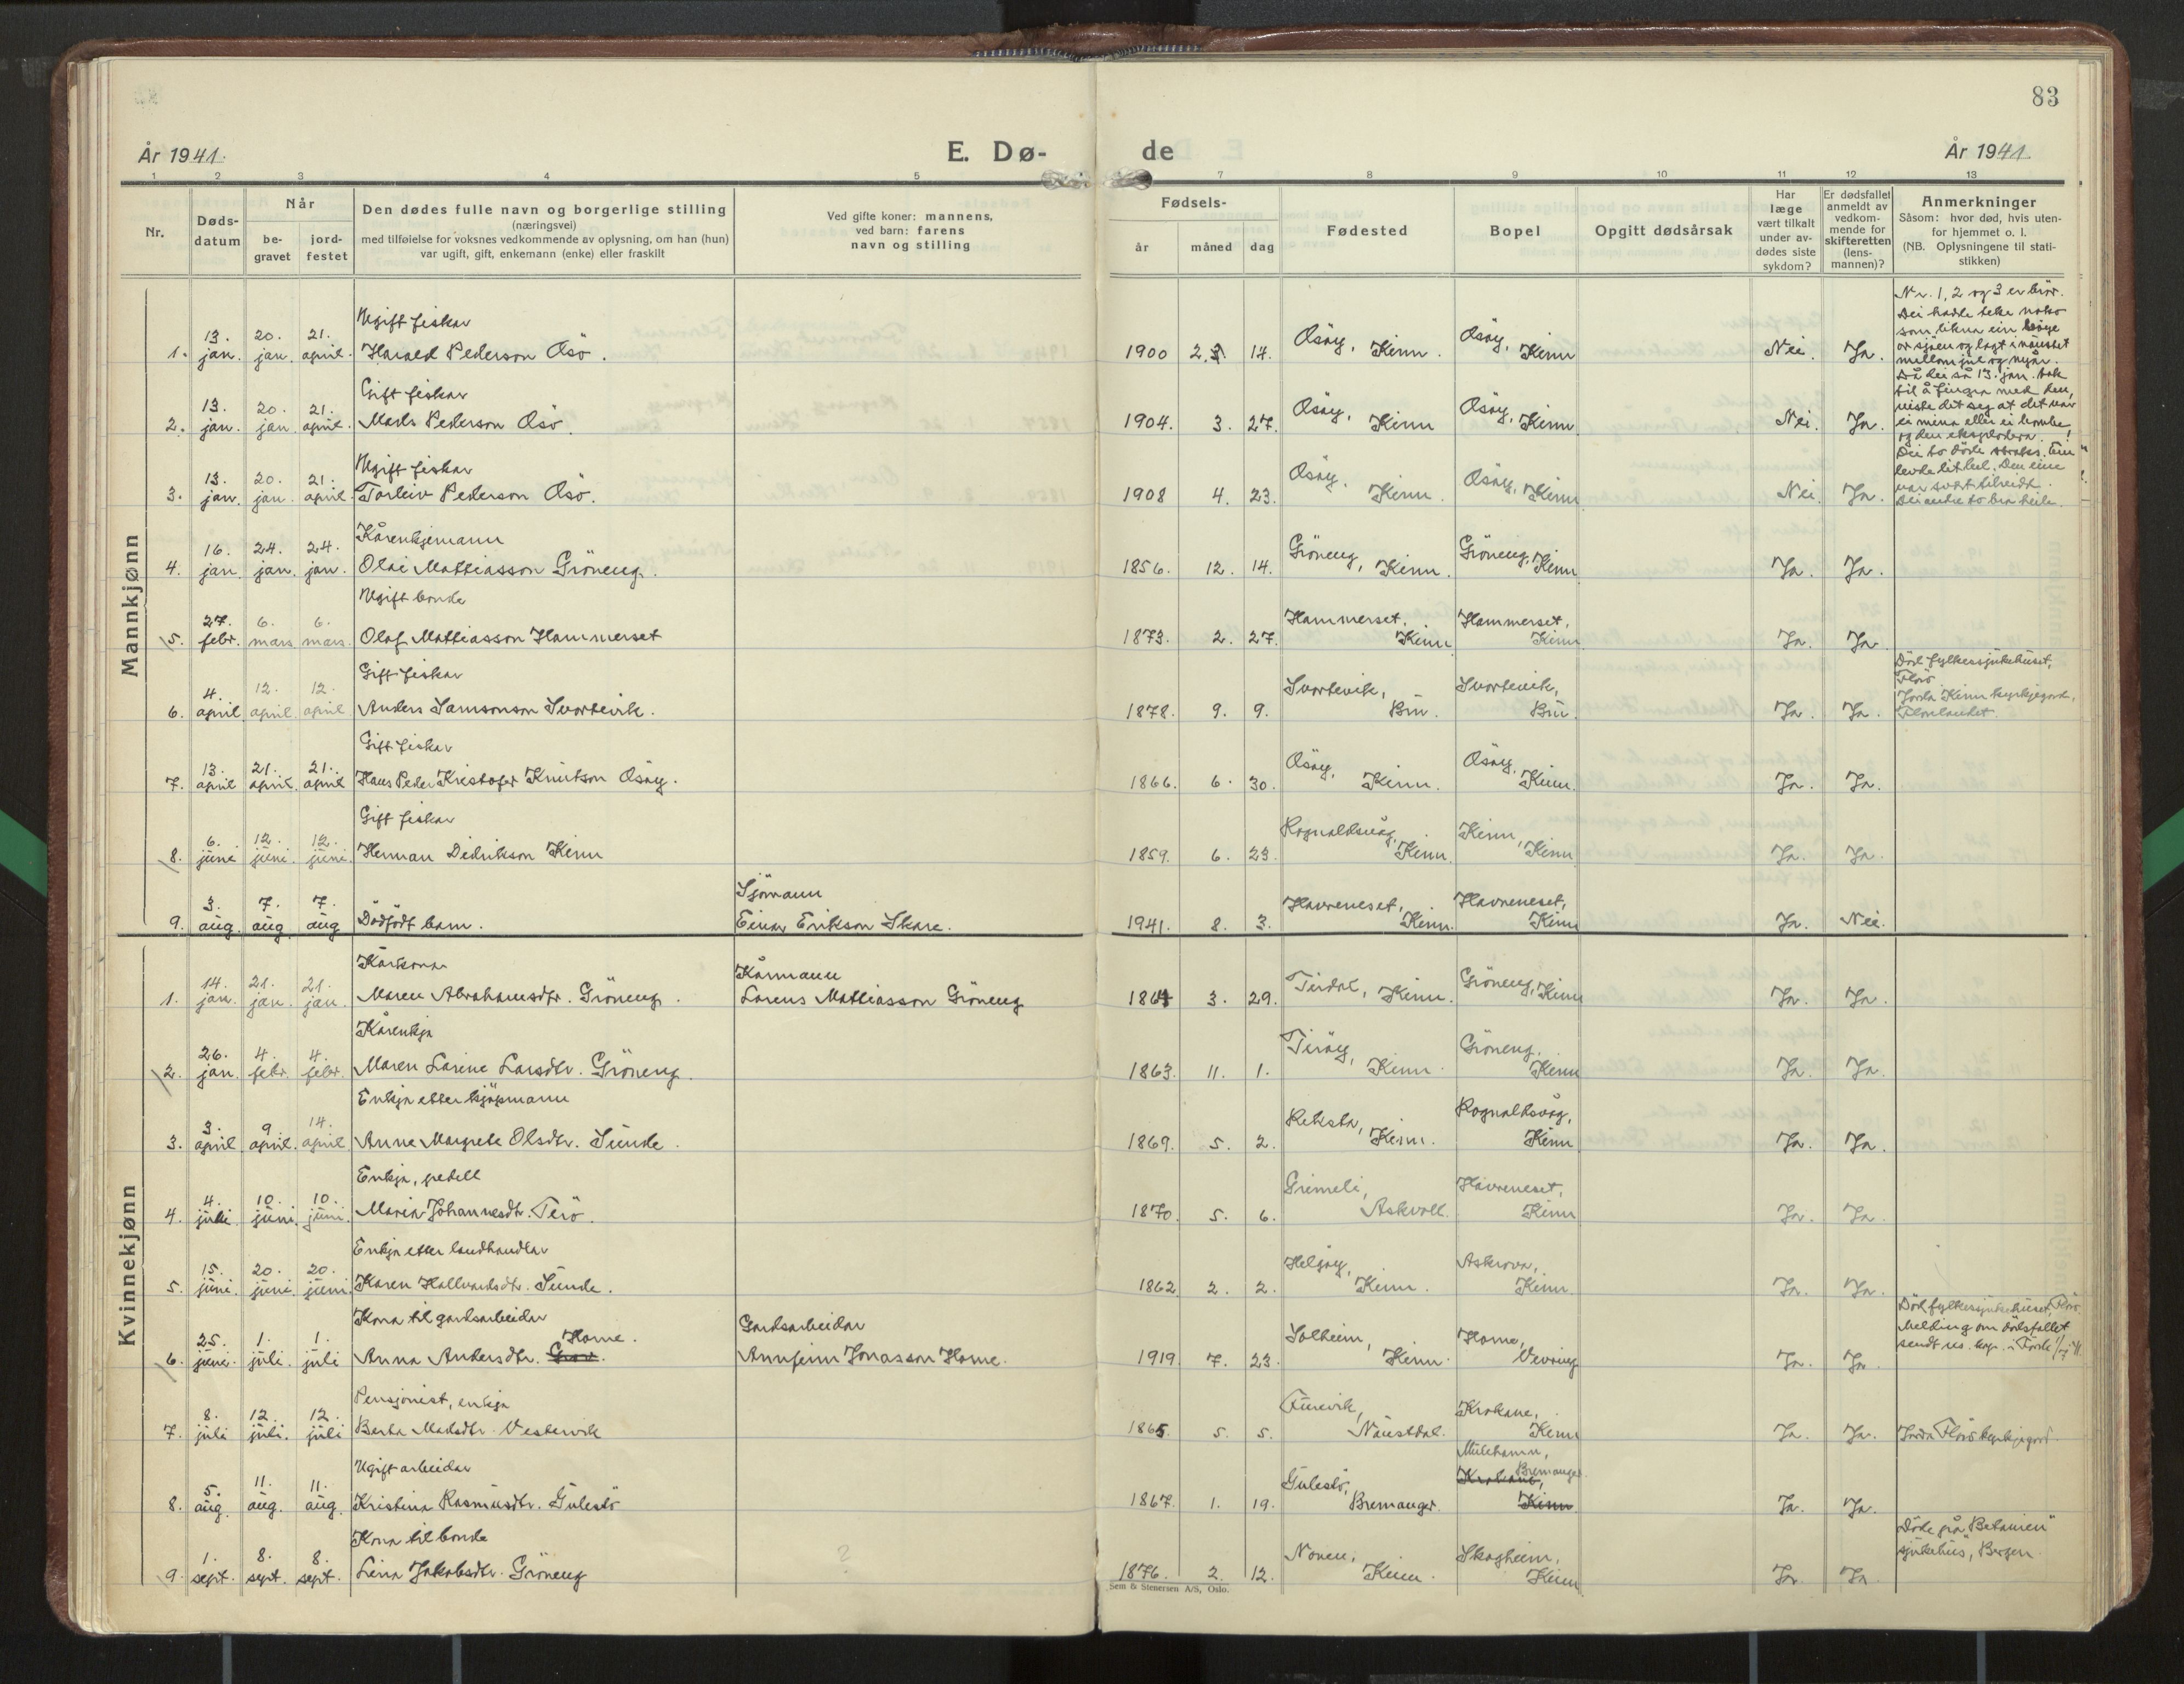 83
År 1941.
E. Dø-
de
År 1941
1 2 3 4 5 7 8 9 10 11 12 13
Nr.
Døds-
datum
Når
be-
gravet
jord-
festet
Den dødes fulle navn og borgerlige stilling
(næringsvei)
med tilføielse for voksnes vedkommende av oplysning, om han (hun)
var ugift, gift, enkemann (enke) eller fraskilt
Ved gifte koner: mannens,
ved barn: farens
navn og stilling
Fødsels-
år måned dag
Fødested
Bopel
Opgitt dødsårsak
Har
læge
vært tilkalt
under av-
dødes siste
sykdom?
Er dødsfallet
anmeldt av
vedkom-
mende for
skifteretten
(lens-
mannen)?
Anmerkninger
Såsom: hvor død, hvis uten-
for hjemmet o. l.
(NB. Oplysningene til stati-
stikken)
Mannkjønn
Ugift fiskar
1. 13. jan. 20. jan. 21. april. Harald Pederson Osö. 1900 2. 14. Osöy, Kinn. Osöy, Kinn Nei. Ja.
Nr. 1, 2 og 3 er brör.
Dei hadde teke noko
som likna ein böye
or sjöen og lagt i naustet
mellom jul og nyår.
Då dei så 13. jan. tok
til å fingra med den,
viste det seg at det var
ei mina eller ei bombe
og den eksplodera.
Dei to döde straks. Ein
levde litt. Den eine
var svårt tilreidt.
Dei andre to bra heile.
Gift fiskar
2. 13. jan. 20. jan. 21. april. Mads Pederson Osö. 1904. 3. 27. Osöy, Kinn Osöy, Kinn Nei. Ja.
Ugift fiskar
3. 13. jan. 20. jan. 21. april. Torleiv Pederson Osö. 1908 4. 23. Osöy, Kinn. Osöy, Kinn Nei. Ja.
Kårenkjemann
4. 16. jan. 24. jan. 24. jan. Olai Mattiasson Gröneng. 1856. 12. 14. Gröneng, Kinn. Gröneng, Kinn Ja. Ja.
Ugift bonde
5. 27. febr. 6. mars 6. mars. Olaf Mattiasson Hammerset 1873. 2. 27. Hammerset, Kinn Hammerset, Kinn Ja. Ja.
Gift fiskar
6. 4. april. 12. april. 12. april Anders Samsonson Svortevik. 1878. 9. 9. Svortevik, Bru. Svortevik, Bru Ja. Ja.
Död fylkessjukehuset,
Florö
Jorda Kinn kyrkjegard,
Florelandet.
Gift fiskar
7. 13. april 21. april. 21. april Hans Peder Kristofer Knutson Osöy. 1866. 6. 30. Osöy, Kinn. Osöy, Kinn. Ja. Ja.
Gift fiskar
8. 6. juni 12. juni. 12. juni. Herman Didrikson Kinn 1859. 6. 23. Rognaldsvåg, Kinn. Kinn, Kinn Ja. Ja.
Sjömann
9. 3. aug. 7. aug. 7. aug Dödfödt barn. Einar Erikson Skare. 1941. 8. 3. Havreneset, Kinn. Havreneset, Kinn Ja. Nei.
Kvinnekjønn
Kårkona Kårmann
1. 14. jan. 21. jan. 21. jan. Maren Abrahamsdtr. Gröneng. Larens Mattiasson Gröneng 1864 3. 29. Tindal, Kinn. Gröneng, Kinn Ja. Ja.
Kårenkja
2. 26. jan 4. febr. 4. febr. Maren Larine Larsdtr. Gröneng. 1863. 11. 1. Teröy, Kinn. Gröneng. Kinn Ja. Ja.
Enkja etter kjöpmann
3. 3. april 9. april. 14. april Anne Margrete Olsdtr. Sunde. 1869. 5. 2. Reksta, Kinn. Rognaldsvåg, Kinn Ja. Ja.
Enkja, pedell
4. 4. juli. 10. juni. 10. juni. Maria Johannesdtr. Terö. 1870. 5. 6. Grimeli, Askvoll. Havreneset, Kinn Ja. Ja.
Enkja etter landhandlar
5. 15. juni. 20. juni. 20. juni. Karen Hallvardsdtr. Sunde. 1862 2. 2. Helgöy, Kinn. Askrova, Kinn. Ja. Ja.
Kona til gardsarbeidar Gardsarbeidar
6. 25. juni. 1. juli. 1. juli Anna Andersdtr. Horne. Annfinn Jonasson Horne. 1919 7. 23. Solheim, Kinn. Horne, Vevring Ja. Ja.
Död fylkessjukehuset, Florö.
Melding om dödsfallet
sendt res. kap. i Förde 1/7 41.
Pensjonist, enkja
7. 8. juli 12. juli. 12. juli Berta Madsdtr. Vestervik 1865 5. 5. Furevik, Naustdal. Krokane, Kinn Ja. Ja. Jorda Florö kyrkjegard.
Ugift arbeidar
8. 5. aug. 11. aug. 11. aug. Kristina Rasmusdtr. Gulestö 1867. 1. 19. Gulestö, Bremanger. Mulehamn, Bremanger. Krokane, Kinn Ja. Ja.
Kona til bonde
9. 1. sept. 8. sept. 8. sept. Lina Jakobsdtr. Gröneng ? 1876. 2. 12. Noven, Kinn. Skogheim, Kinn Ja. Ja.
Döde på "Betanien"
sjukehus, Bergen.
Sem & Stenersen A/S, Oslo.